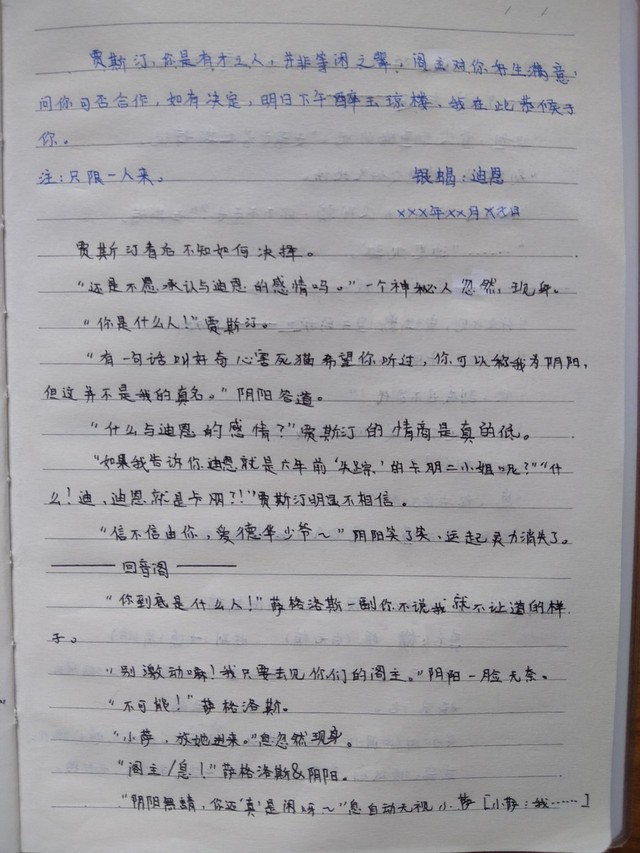 贾斯汀,你是有才之人,并非等闲之辈,阁主对你好生满意,
问你可否合作,如有决定,明日下午醉玉琼楼,我在此恭候于
你。
注:只限一人来。 银蝎:迪恩
×××年××月××日
贾斯汀看后不知如何决择。
“还是不愿承认与迪恩的感情吗。”一个神秘人忽然,现身。
“你是什么人!”贾斯汀。
“有一句话叫好奇心害死猫希望你听过,你可以称我为阴阳,
但这并不是我的真名。”阴阳答道。
“什么与迪恩的感情?”贾斯汀的情商是真的低。
“如果我告诉你迪恩就是六年前‘失踪’的卡丽二小姐呢?”“什
么!迪、迪恩就是卡丽?!”贾斯汀明显不相信。
“信不信由你,爱德华少爷~”阴阳笑了笑、运起灵力消失了。
——— 回音阁 ———
“你到底是什么人!”萨格洛斯一副你不说我就不让道的样
子。
“别激动嘛!我只要去见你们的阁主。”阴阳一脸无奈。
“不可能!”萨格洛斯。
“小萨,放她进来。”息忽然现身。
“阁主/息!”萨格洛斯&阴阳。
“阴阳無蜻,你还‘真’是闲呀~”息自动无视小萨[小萨:我……]